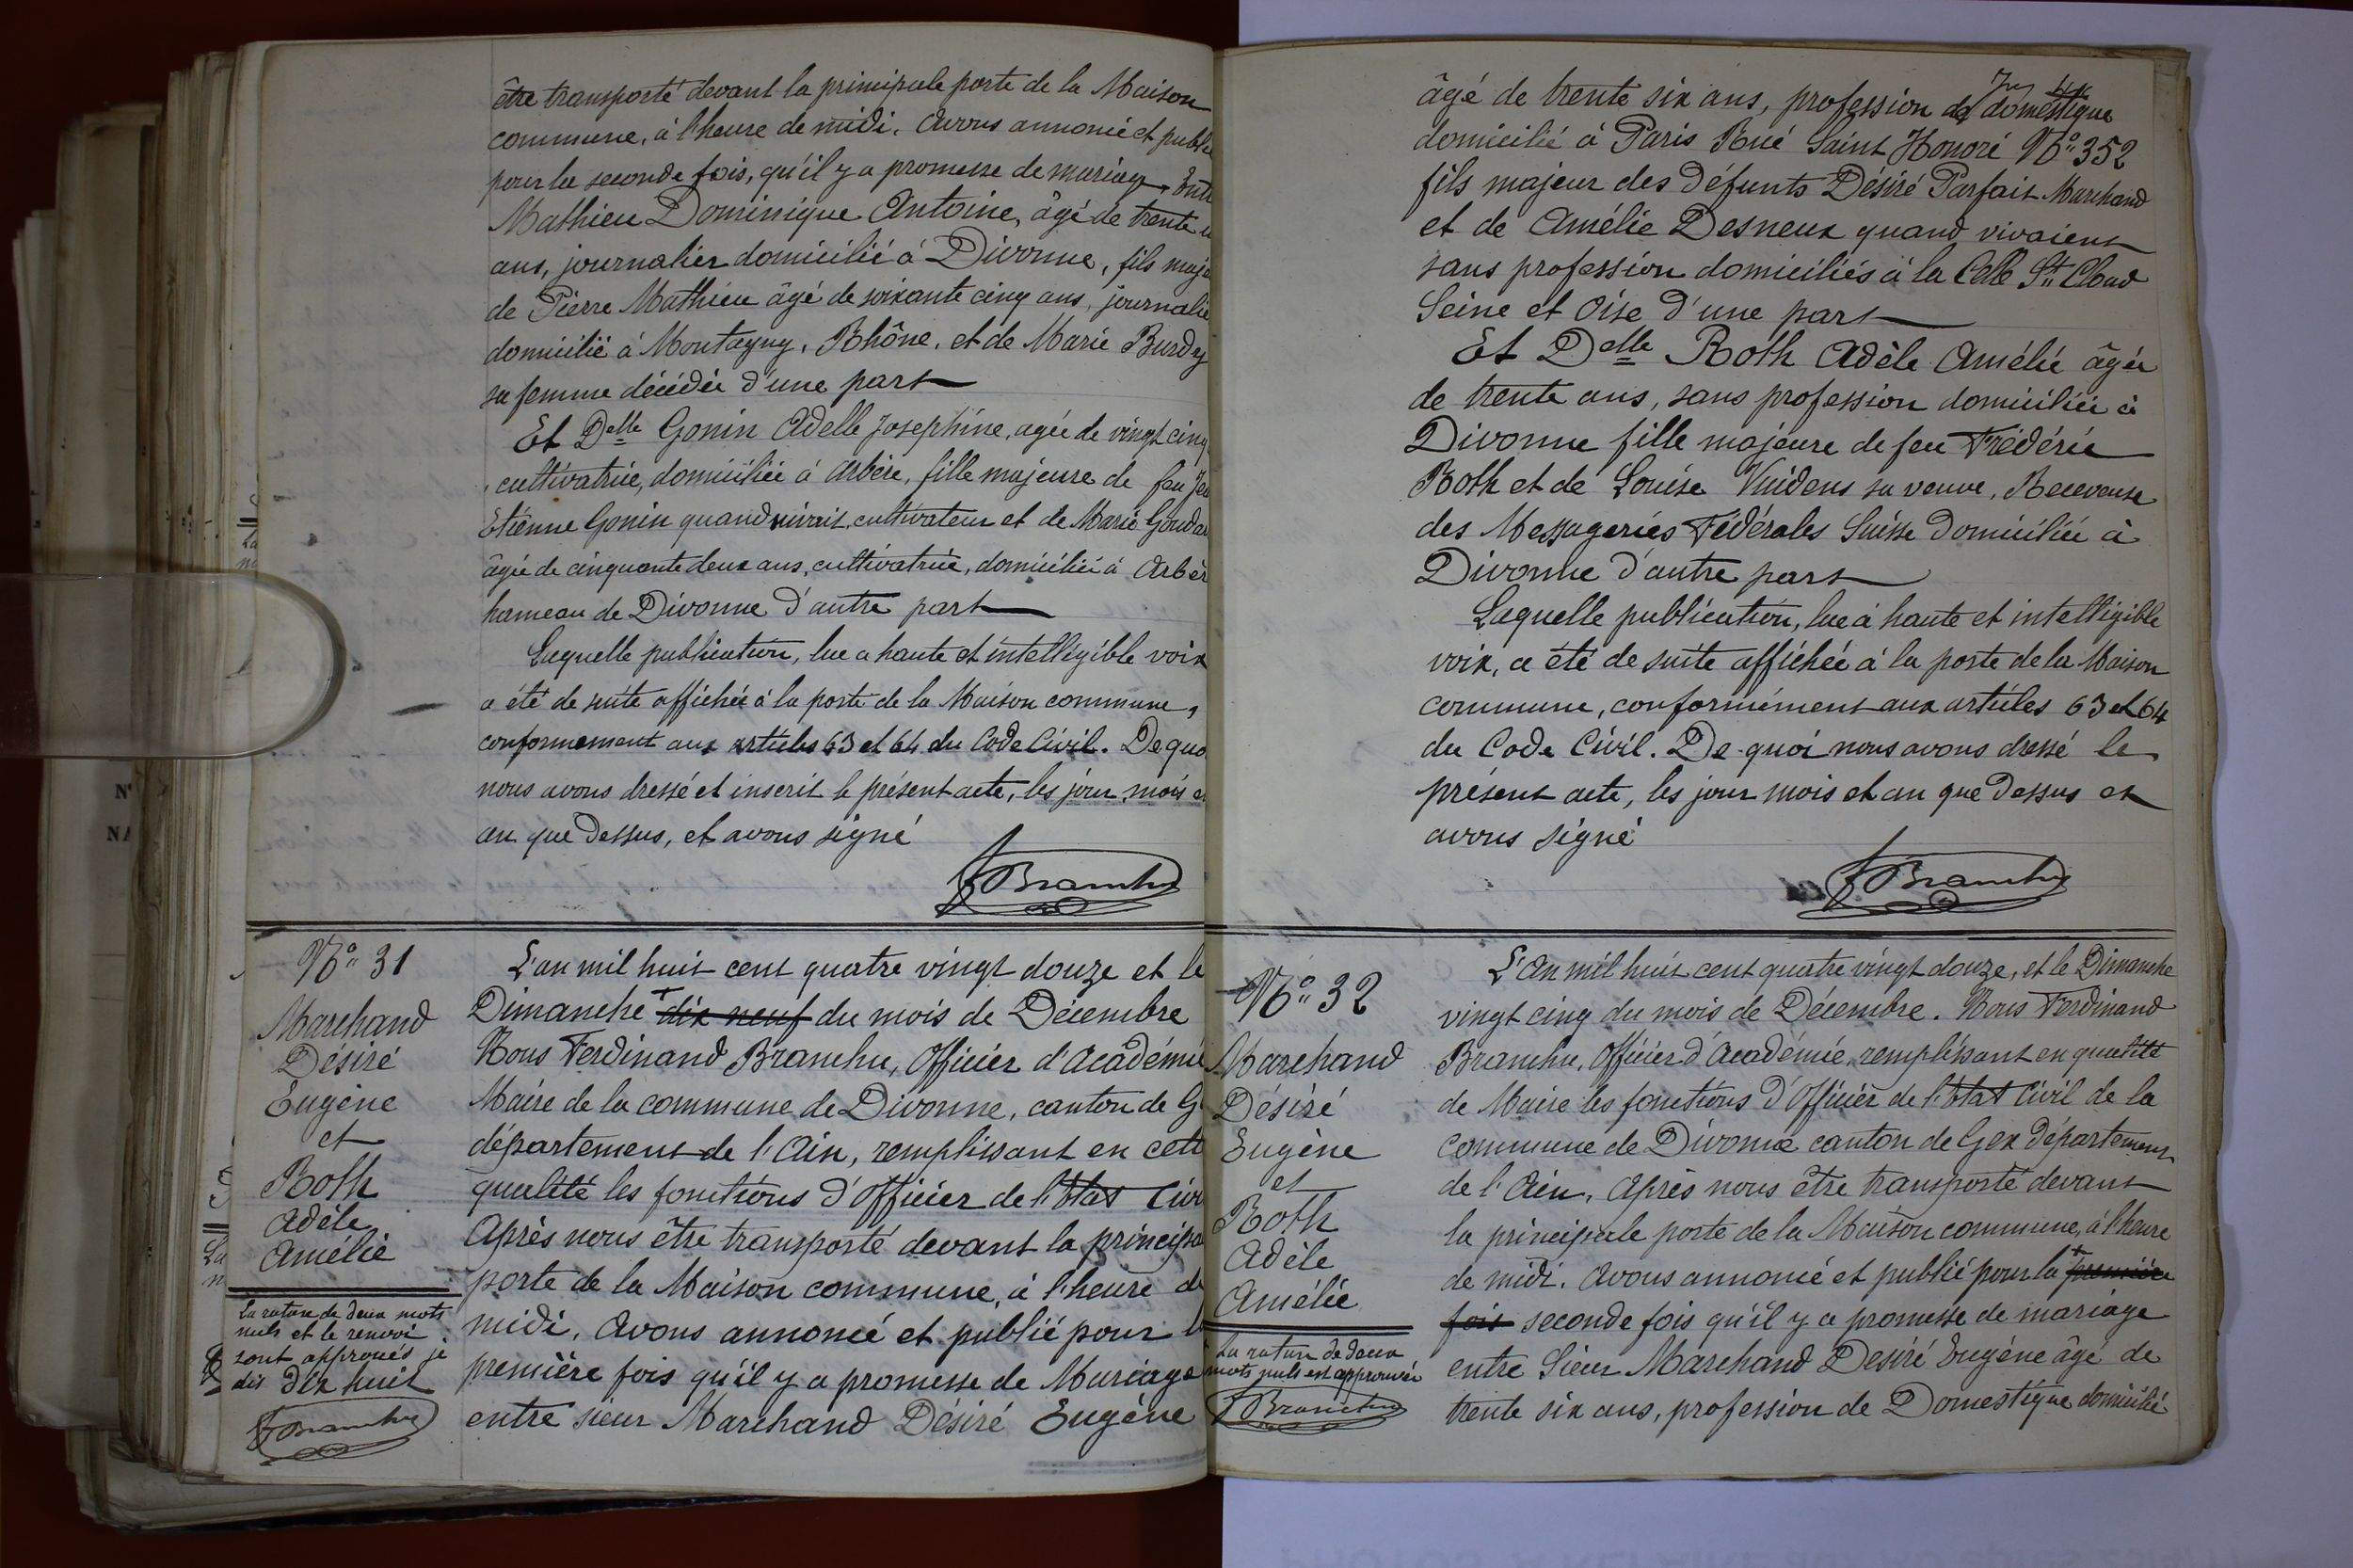 être transporté devant la principale porte de la Maison
commune, à l'heure de midi. Avons annoncé et publi
pour la seconde fois, qu'il y a promesse de mariage Entr
Mathieu Dominique Antoine, âgé de trente
ans, journalier domicilié à Divonne, fils maje
de Pierre Mathieu âgé de soixante cinq ans, journalie
domicilié à Montagny, Rhône, et de Marie Burdy
sa femme décédée d'une part
Et Delle Gonin Adelle Josephine, agée de vingt cinq
cultivatrice, domiciliée à Arbère, fille majeure de feu Jea
Etienne Gonin quand vivait cultivateur et de Marie Goudar
âgée de cinquante deux ans, cultivatrice, domiciliée à Arbèr
hameau de Divonne d'autre part
Laquelle publication, lue a haute et intelligible voix
a été de suite affichée à la porte de la Maison commune,
conformement aux articles 63 et 64 du Code Civil. De quo
nous avons dressé et inscrit le présent acte, les jour, mois e
an que dessus, et avons signé
FBranchu
No 31
Marchand
Désiré
Eugène
et
Roth
Adèle
Amélie
La rature de deux mots
nuls et le renvoi
sont approuvés je
dis dix huit
FBranchu
L'an mil huit cent quatre vingt douze et le
Dimanche + dix neuf du mois de Décembre
Nous Ferdinand Branchu, Officier d'Académie
Maire de la commune de Divonne, canton de G
département de l'Ain, remplissant en cette
qualité les fonctions d'Officier de l'Etat Civi
Après nous être transporté devant la principa
porte de la Maison commune, à l'heure de
midi, Avons annoncé et publié pour l
première fois qu'il y a promesse de Mariage
entre sieur Marchand Désiré Eugène
âgé de trente six ans, profession de domestique
domicilié à Paris Rue Saint Honoré No 352
fils majeur des défunts Désiré Parfait Marchand
et de Amélie Desneux quand vivaient
sans profession domiciliés à la Celle St Cloud
Seine et Oise d'une part
Et Delle Roth Adèle Amélie âgée
de trente ans, sans profession domiciliée à
Divonne fille majeure de feu Frédéric
Roth et de Louise Vuidens sa veuve, Receveuse
des Messageries Fédérales Suisse domiciliée à
Divonne d'autre part
Laquelle publication, lue à haute et intelligible
voix, a été de suite affichée à la porte de la Maison
commune, conformément aux articles 63 et 64
du Code Civil. De quoi nous avons dressé le
présent acte, les jour mois et an que dessus et
avons signé
FBranchu
No 32
Marchand
Désiré
Eugène
et
Roth
Adèle
Amélie
La rature de deux
mots nuls est approuvée
FBranchu
L'An mil huit cent quatre vingt douze, et le Dimanche
vingt cinq du mois de Décembre. Nous Ferdinand
Branchu, Officier d'Académie, remplissant en qualité
de Maire les fonctions d'Officier de l'Etat Civil de la
commune de Divonne canton de Gex département
de l'Ain. Après nous être transporté devant
la principale porte de la Maison commune, à l'heure
de midi. Avons annoncé et publié pour la + première
fois seconde fois qu'il y a promesse de mariage
entre Sieur Marchand Desiré Eugène âgé de
trente six ans, profession de Domestique domicilié